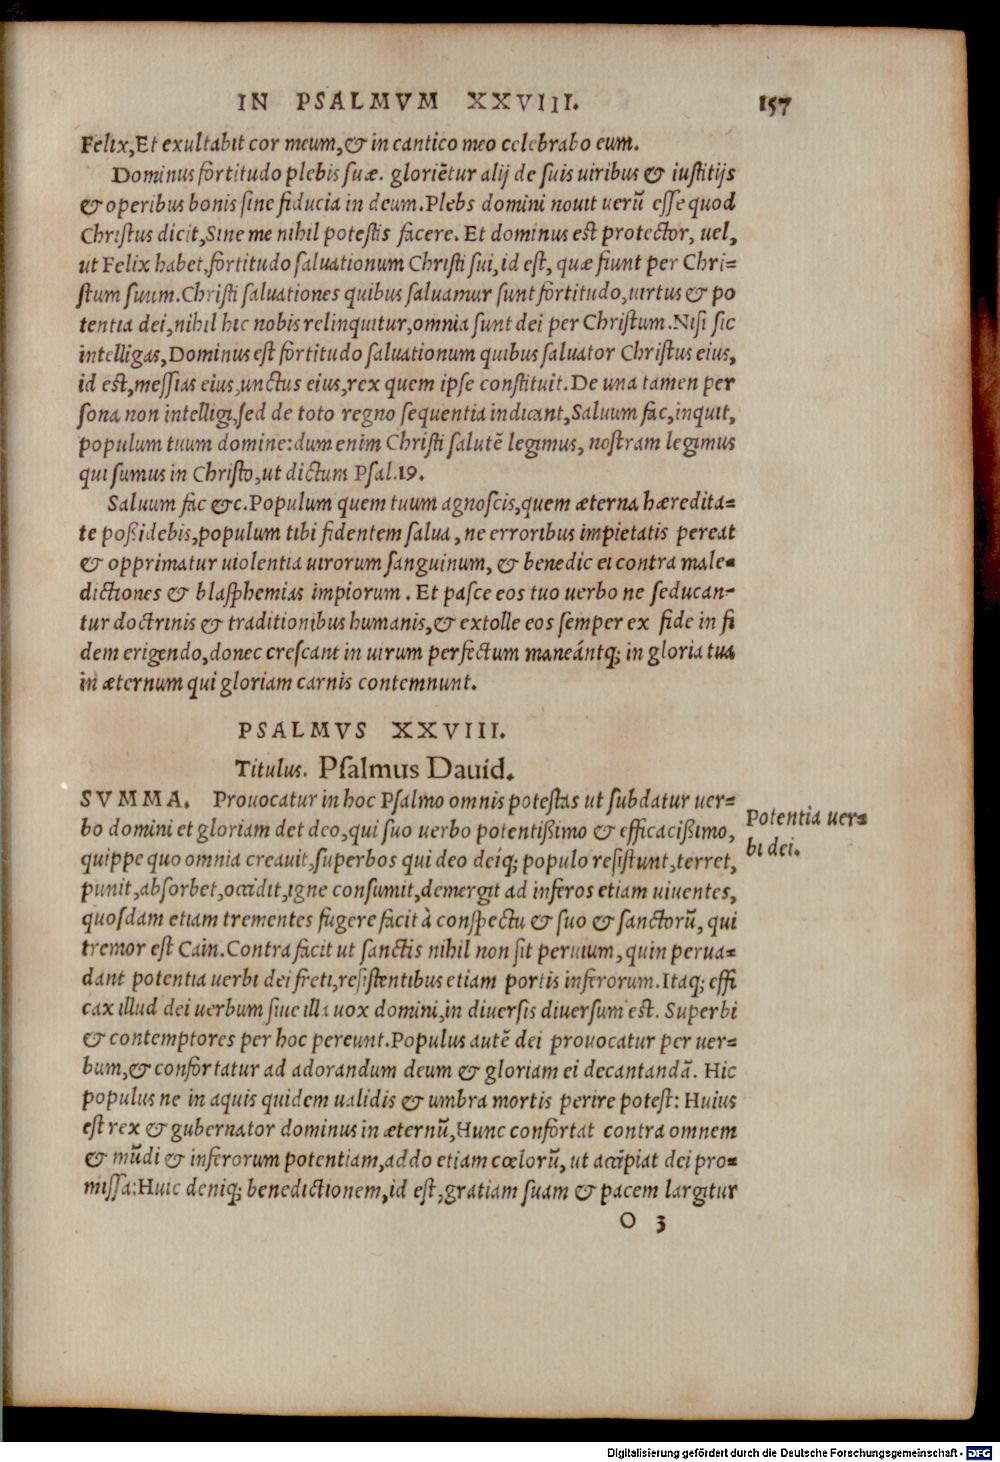 IN PSALMVM XXVIII. 157
Felix, Et exultabit cor meum, & in cantico meo celebrabo eum.
Dominus fortitudo plebis suæ. gloriẽtur alij de suis uiribus & iustitijs
& operibus bonis sine fiducia in deum. Plebs domini nouit uerũ esse quod
Christus dicit, Sine me nihil potestis facere. Et dominus est protector, uel,
ut Felix habet, fortitudo saluationum Christi sui, id est, quæ fiunt per Chri=
stum suum. Christi saluationes quibus saluamur sunt fortitudo, uirtus & po
tentia dei, nihil hic nobis relinquitur, omnia sunt dei per Christum. Nisi sic
intelligas, Dominus est fortitudo saluationum quibus saluator Christus eius,
id est, messias eius, unctus eius, rex quem ipse constituit. De una tamen per
sona non intelligi, sed de toto regno sequentia indicant, Saluum fac, inquit,
populum tuum domine: dum enim Christi salutẽ legimus, nostram legimus
qui sumus in Christo, ut dictum Psal. 19.
Saluum fac &c. Populum quem tuum agnoscis, quem æterna hæredita=
te poßidebis, populum tibi fidentem salua, ne erroribus impietatis pereat
& opprimatur uiolentia uirorum sanguinum, & benedic ei contra male=
dictiones & blasphemias impiorum. Et pasce eos tuo uerbo ne seducan=
tur doctrinis & traditionibus humanis, & extolle eos semper ex fide in fi
dem erigendo, donec crescant in uirum perfectum maneántq; in gloria tua
in æternum qui gloriam carnis contemnunt.
PSALMVS XXVIII.
Titulus. Psalmus Dauid.
SVMMA. Prouocatur in hoc Psalmo omnis potestas ut subdatur uer=
bo domini et gloriam det deo, qui suo uerbo potentißimo & efficacißimo,
quippe quo omnia creauit, superbos qui deo deíq; populo resistunt, terret,
punit, absorbet, occidit, igne consumit, demergit ad inferos etiam uiuentes,
quosdam etiam trementes fugere facit à conspectu & suo & sanctorũ, qui
tremor est Cain. Contra facit ut sanctis nihil non sit peruium, quin perua=
dant potentia uerbi dei freti, resistentibus etiam portis inferorum. Itaq; effi
cax illud dei uerbum siue illa uox domini, in diuersis diuersum est. Superbi
& contemptores per hoc pereunt. Populus autẽ dei prouocatur per uer=
bum, & confortatur ad adorandum deum & gloriam ei decantandã. Hic
populus ne in aquis quidem ualidis & umbra mortis perire potest: Huius
est rex & gubernator dominus in æternũ, Hunc confortat contra omnem
& mũdi & inferorum potentiam, addo etiam cœlorũ, ut accipiat dei pro=
missa: Huic deniq; benedictionem, id est, gratiam suam & pacem largitur
O 3
Potentia uer=
bi dei.
Digitalisierung gefördert durch die Deutsche Forschungsgemeinschaft - DFG